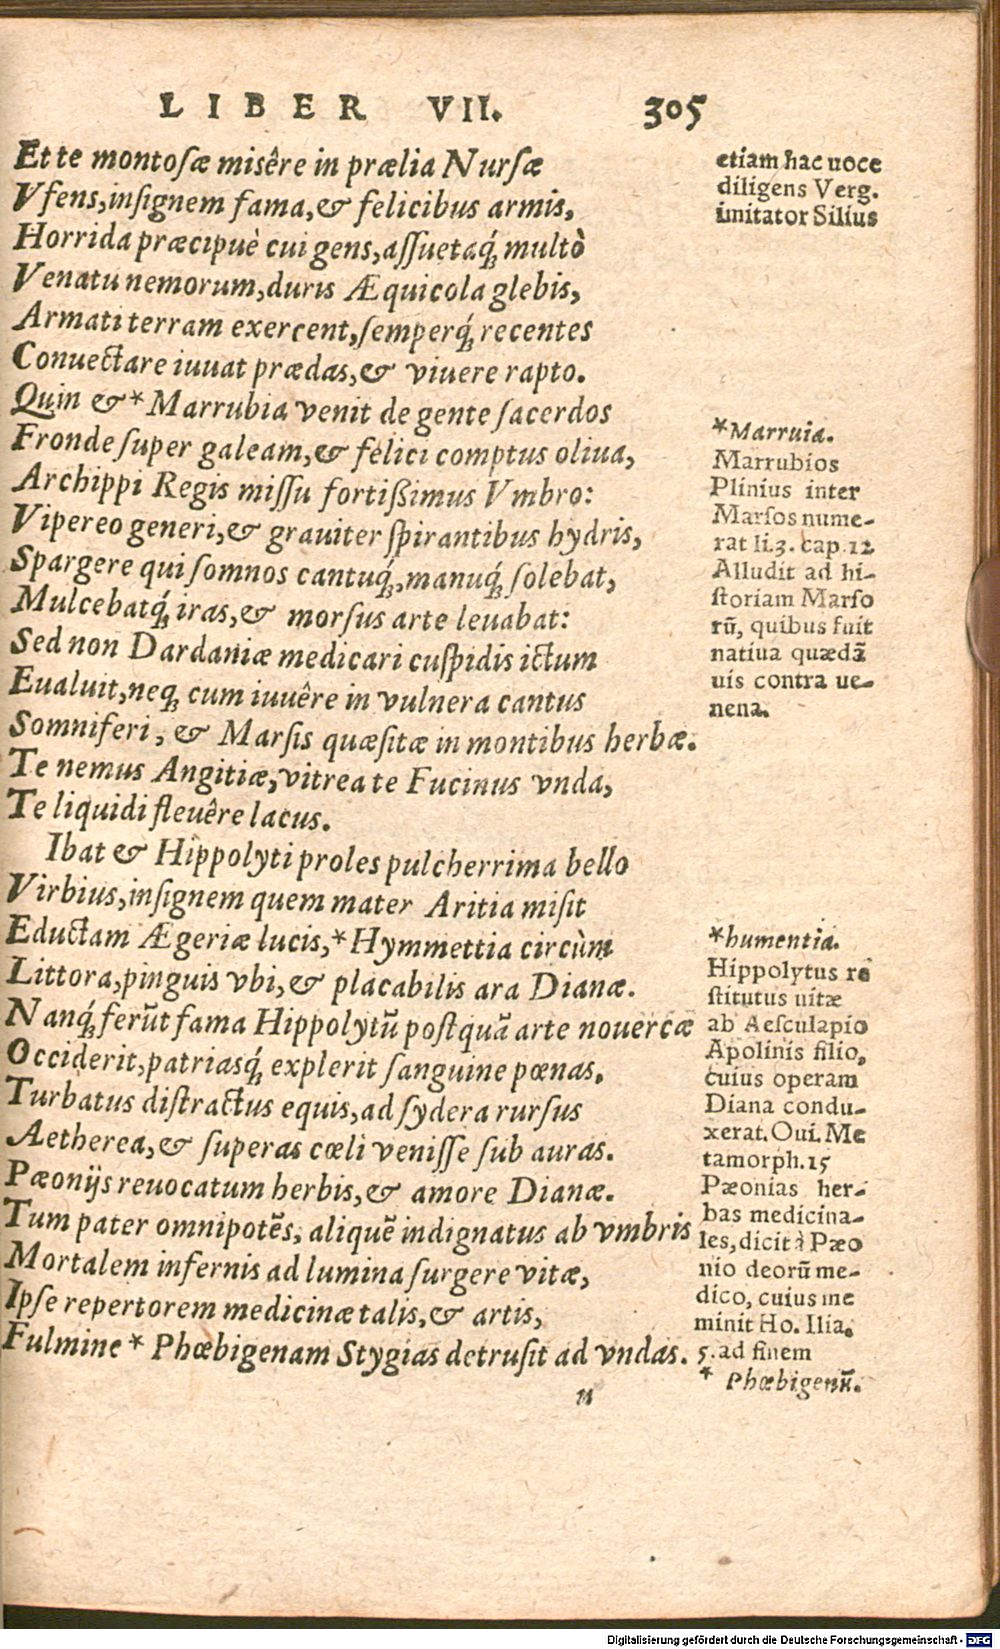 LIBER VII. 305
Et te montosæ misêre in prælia Nursæ
Vfens, insignem fama, & felicibus armis,
Horrida præcipuè cui gens, assuetaq́; multò
Venatu nemorum, duris Æquicola glebis,
Armati terram exercent, semperq́; recentes
Conuectare iuuat prædas, & viuere rapto.
Quin & * Marrubia venit de gente sacerdos
Fronde super galeam, & felici comptus oliua,
Archippi Regis missu fortißimus Vmbro:
Vipereo generi, & grauiter spirantibus hydris,
Spargere qui somnos cantuq́;, manuq́; solebat,
Mulcebatq́; iras, & morsus arte leuabat:
Sed non Dardaniæ medicari cuspidis ictum
Eualuit, neq; cum iuuêre in vulnera cantus
Somniferi, & Marsis quæsitæ in montibus herbæ.
Te nemus Angitiæ, vitrea te Fucinus vnda,
Te liquidi fleuêre lacus.
Ibat & Hippolyti proles pulcherrima bello
Virbius, insignem quem mater Aritia misit
Eductam Ægeriæ lucis, * Hymmettia circùm
Littora, pinguis vbi, & placabilis ara Dianæ.
Nanq́; ferũt fama Hippolytũ postquã arte nouercæ
Occiderit, patriasq́; explerit sanguine pœnas,
Turbatus distractus equis, ad sydera rursus
Aetherea, & superas cœli venisse sub auras.
Pæonijs reuocatum herbis, & amore Dianæ.
Tum pater omnipotẽs, aliquẽ indignatus ab vmbris
Mortalem infernis ad lumina surgere vitæ,
Ipse repertorem medicinæ talis, & artis,
Fulmine * Phœbigenam Stygias detrusit ad vndas.
etiam hac uoce
diligens Verg.
imitator Silius
*Marruia.
Marrubios
Plinius inter
Marsos nume-
rat li.3. cap.12
Alludit ad hi-
storiam Marso
rũ, quibus fuit
natiua quædã
uis contra ue-
nena.
*humentia.
Hippolytus re
stitutus uitæ
ab Aesculapio
Apolinis filio,
cuius operam
Diana condu-
xerat. Oui. Me
tamorph.15
Pæonias her-
bas medicina-
les, dicit à Pæo
nio deorũ me-
dico, cuius me
minit Ho. Ilia.
5. ad finem
* Phœbigenũ.
u
Digitalisierung gefördert durch die Deutsche Forschungsgemeinschaft - DFG